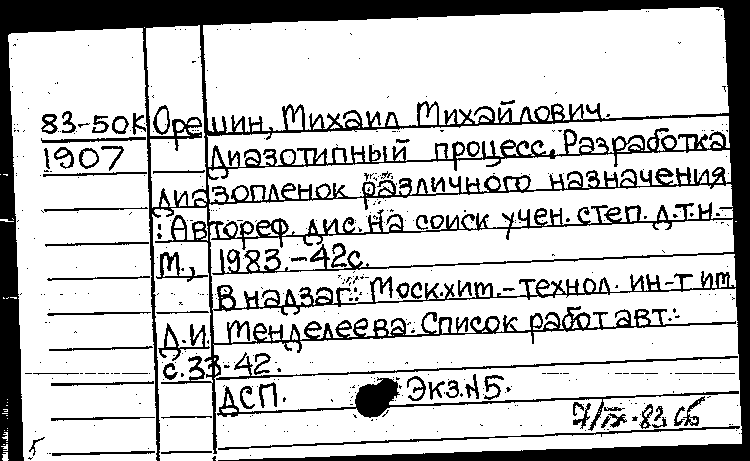 83-50К Орешин, Михаил Михайлович.
1907 Диазотипный процесс. Разработка
диазопленок различного назначения
: Автореф. дис. на соиск учен. степ. д.т.н.-
М., 1983.-42с.
В надзаг.: Моск.хим.-технол. ин-т им.
Д.И. Менделеева. Список работ авт.:
с.33-42.
ДСП. Экз.№5.
83
5